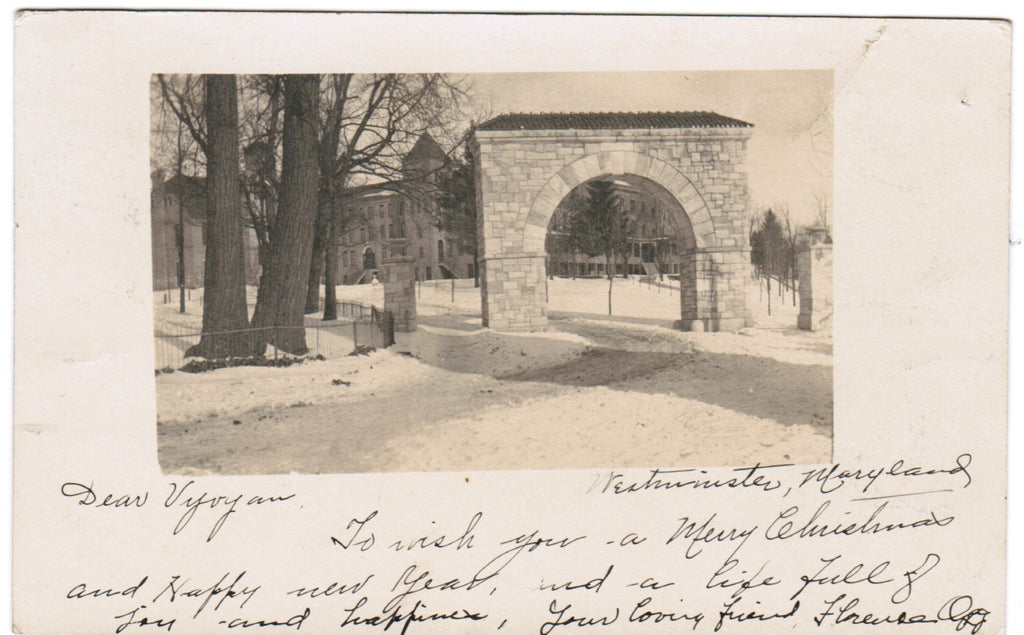 Westminster, Maryland
Dear Vyvyan,
To wish you a Merry Christmas
and Happy new Year, and a life full of
joy and happiness, Your loving friend, Florence